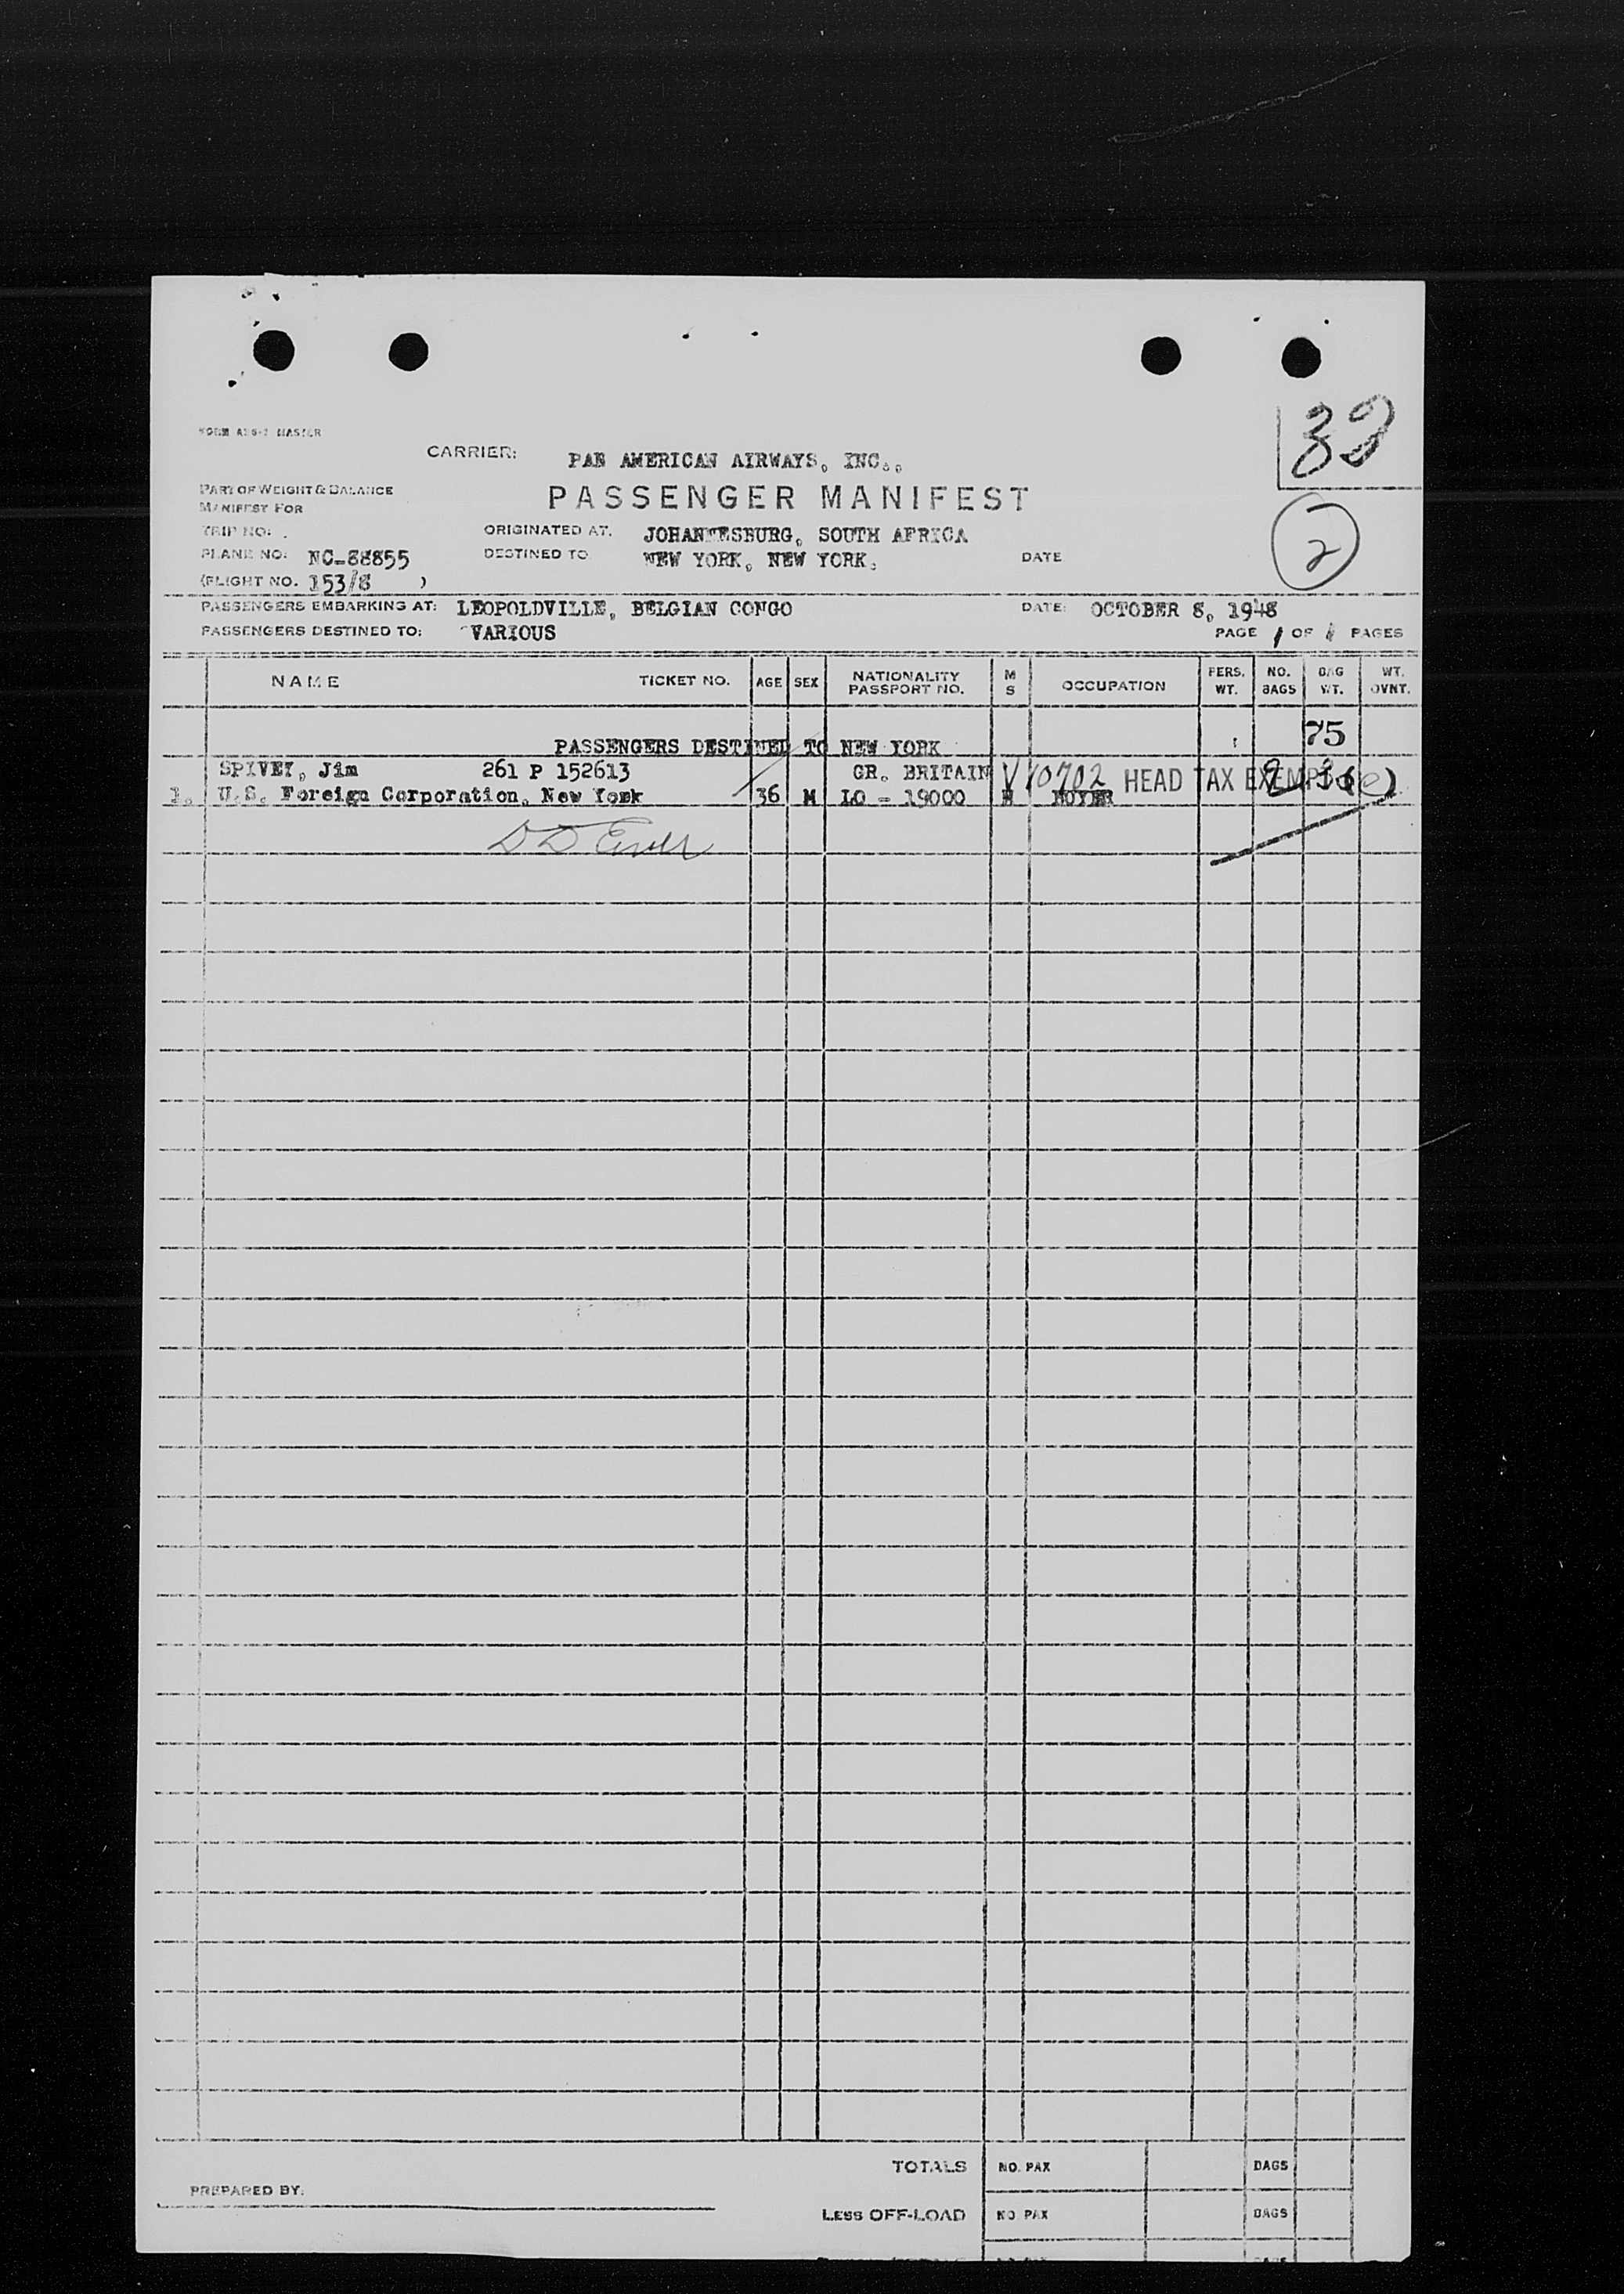 32
CARRIER: PAN AMERICAN AIRWAYS, INC.,
PART OF WEIGHT & BALANCE
MANIFEST FOR
PASSENGER MANIFEST
2
TRIP NO: ORIGINATED AT. JOHANNESBURG, SOUTH AFRICA
PLANE NO: NC-88855 DESTINED TO NEW YORK, NEW YORK. DATE
(FLIGHT NO. 153/8 )
PASSENGERS EMBARKING AT: LEOPOLDVILLE, BELGIAN CONGO DATE: OCTOBER 8, 1948
PASSENGERS DESTINED TO: VARIOUS PAGE 1 OF 1 PAGES
NAME TICKET NO. AGE SEX NATIONALITY PASSPORT NO. M S OCCUPATION PERS. WT. NO. BAGS BAG WT. WT. OVNT.
75
PASSENGERS DESTINED TO NEW YORK
SPIVEY, Jim 261 P 152613 GR. BRITAIN V10702 HEAD TAX EXEMPT 3(e)
1. U.S. Foreign Corporation, New York 36 M LO - 19000 BUYER
TOTALS NO. PAX BAGS
PREPARED BY:
LESS OFF-LOAD NO. PAX BAGS